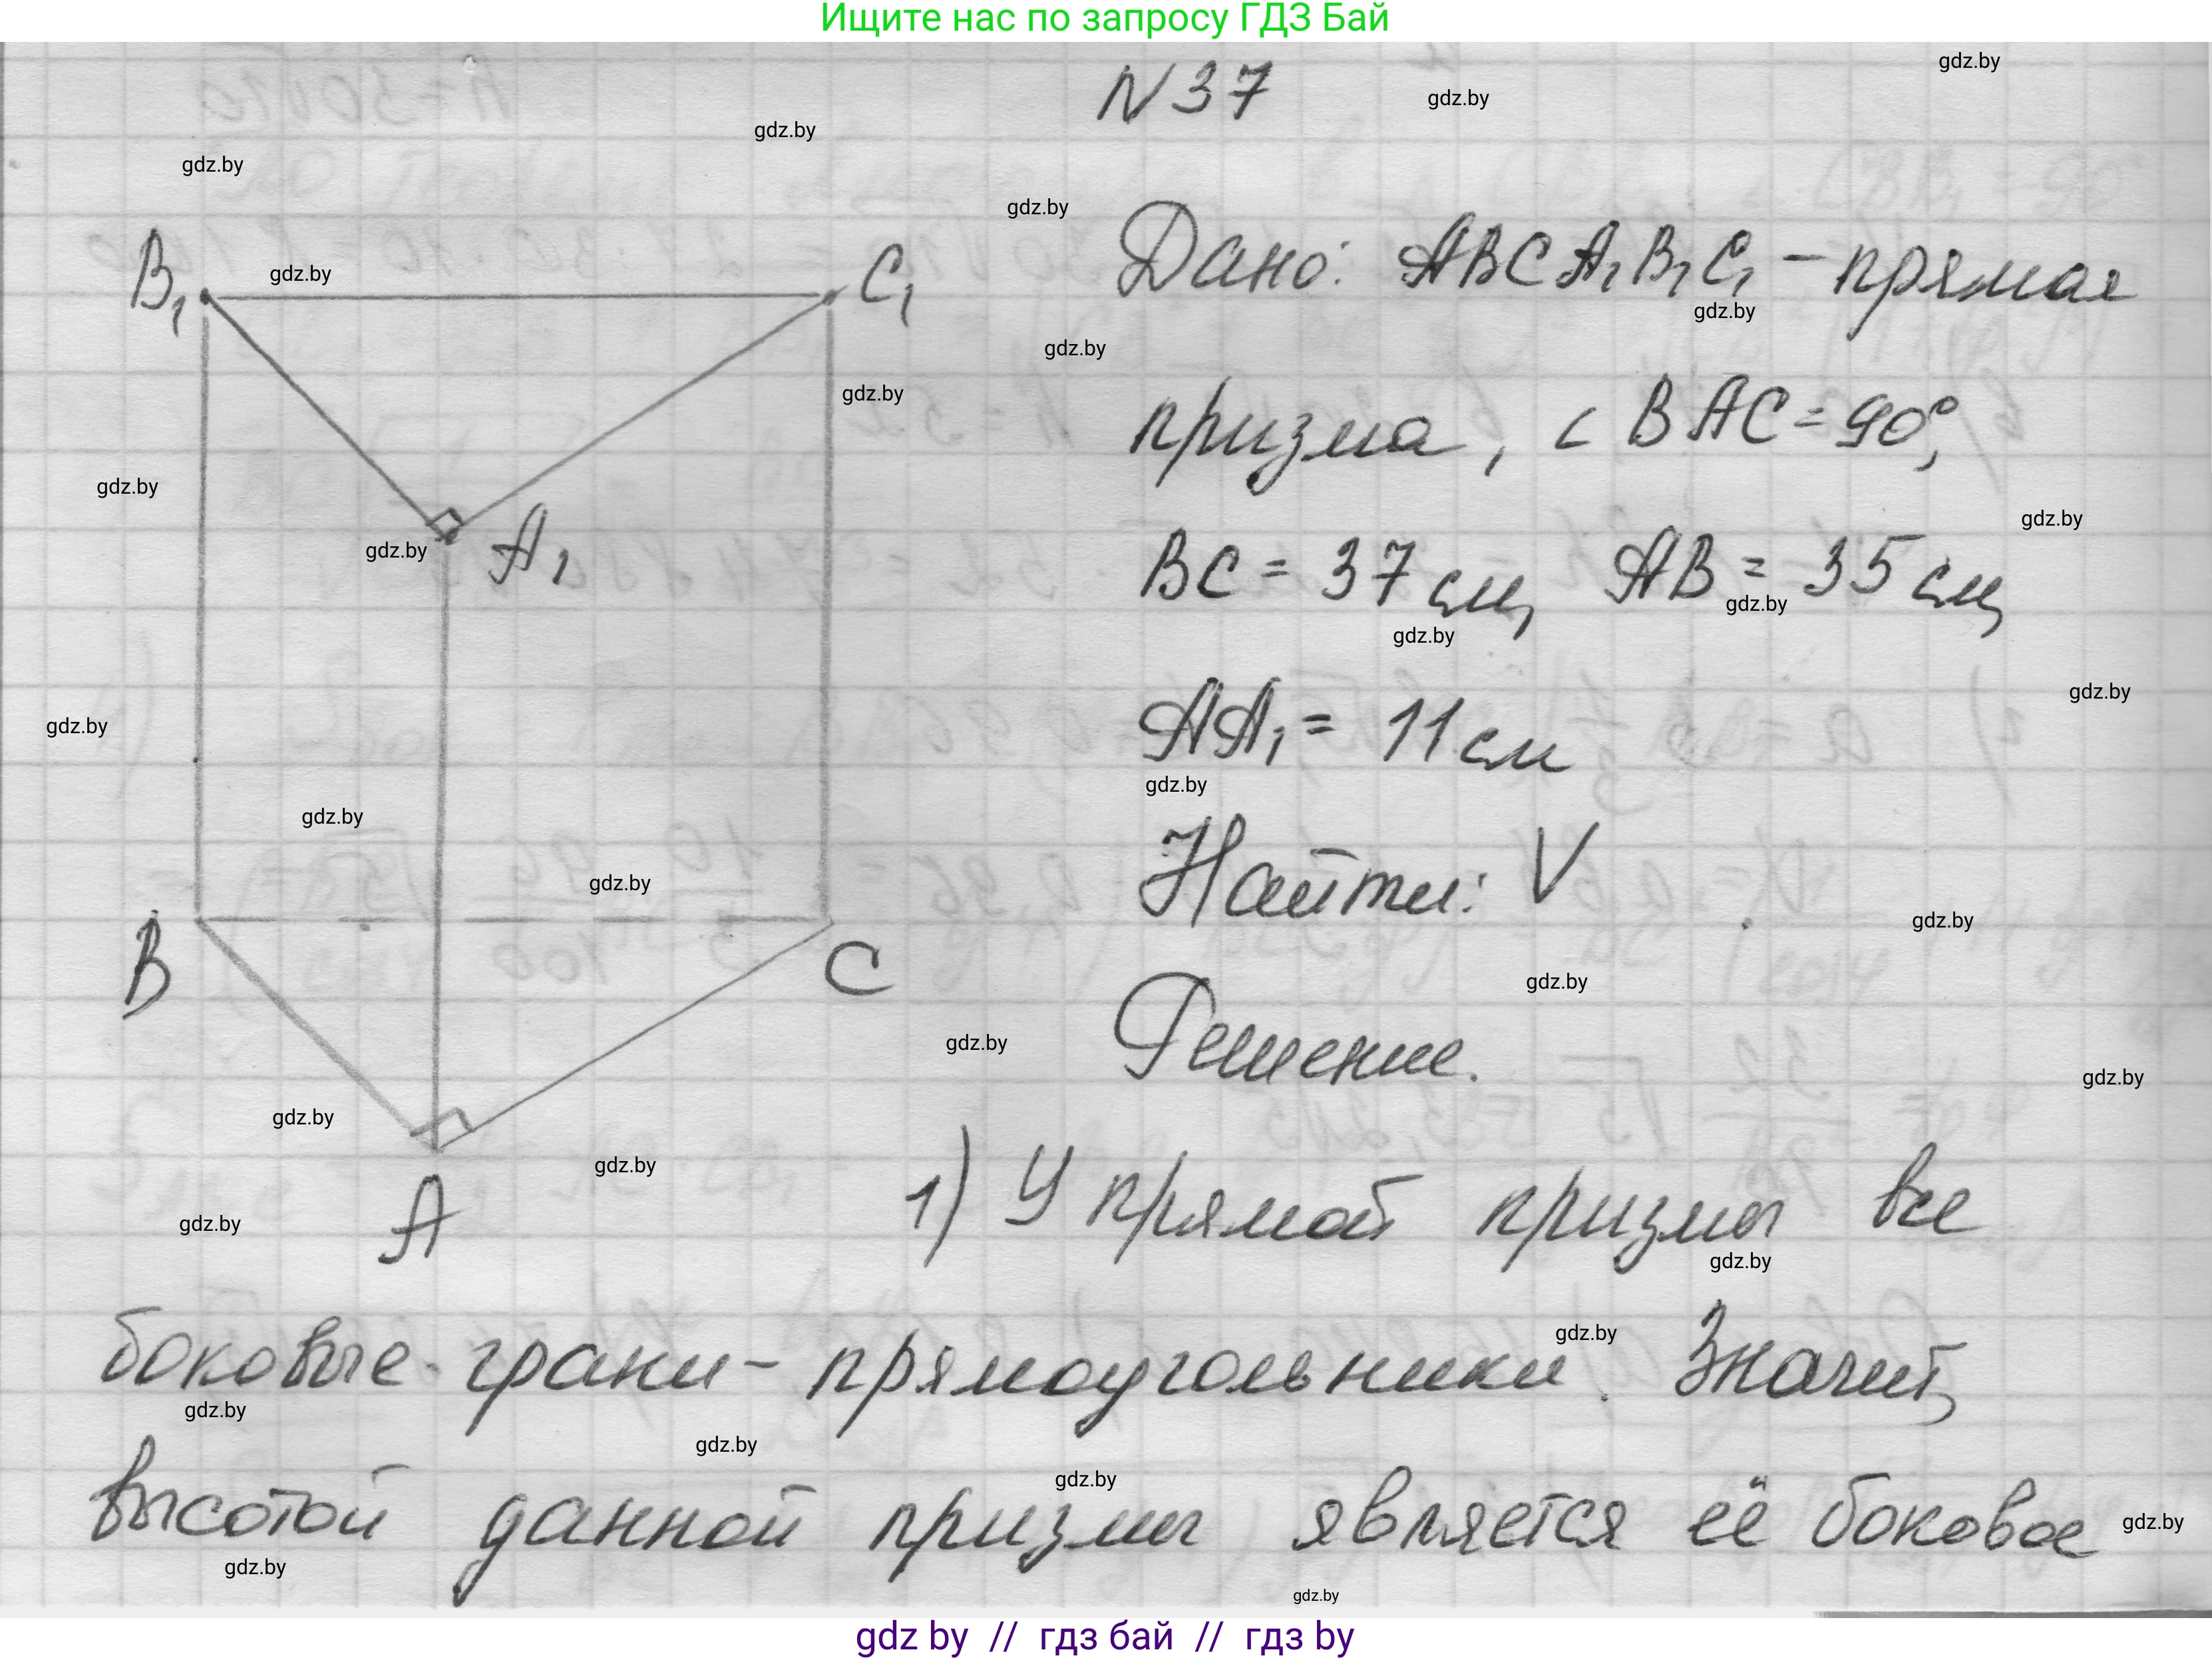 Ищите нас по запросу ГДЗ Бай
N 37
gdz.by
gdz.by
gdz.by
gdz.by
gdz.by
B₁
gdz.by
C₁
Дано: ABCA₁B₁C₁ - прямая
gdz.by
gdz.by
gdz.by
призма, ∠BAC = 90°,
gdz.by
gdz.by
gdz.by
A₁
BC = 37 см, AB = 35 см,
gdz.by
gdz.by
gdz.by
gdz.by
AA₁ = 11 см
gdz.by
gdz.by
Найти: V
gdz.by
gdz.by
B
C
gdz.by
gdz.by
Решение.
gdz.by
gdz.by
gdz.by
A
gdz.by
1) У прямой призмы все
gdz.by
gdz.by
боковые грани - прямоугольники. Значит,
gdz.by
gdz.by
gdz.by
высотой данной призмы является её боковое
gdz.by
gdz.by
gdz.by
gdz by // гдз бай // гдз by